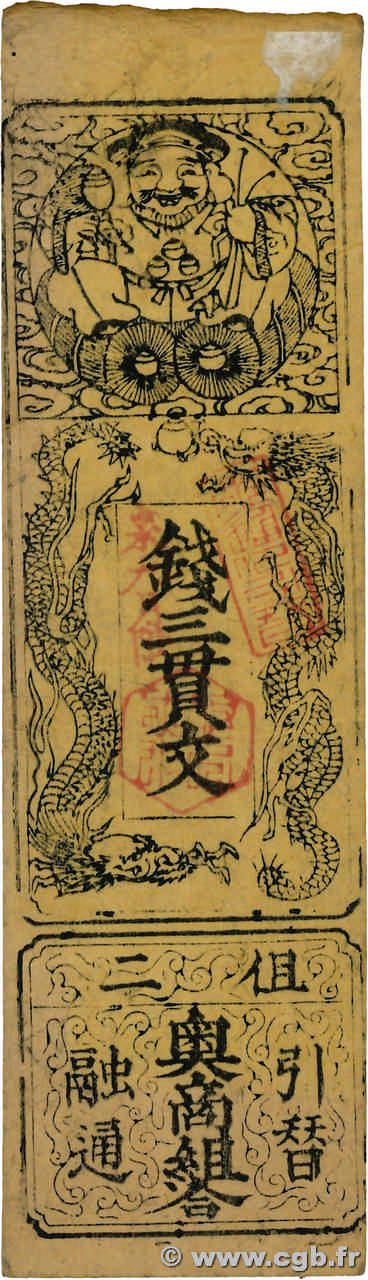 錢三貫文
伹二
引替
奥商組合
融通
© www.cgb.fr